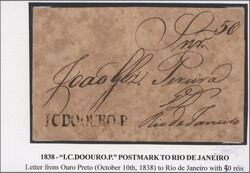 Snr. 50
João Glz. Pereira
I.C.DOOURO.P.
Rio de Janeiro
1838 - "I.C.DOOURO.P." POSTMARK TO RIO DE JANEIRO
Letter from Ouro Preto (October 10th, 1838) to Rio de Janeiro with 50 réis